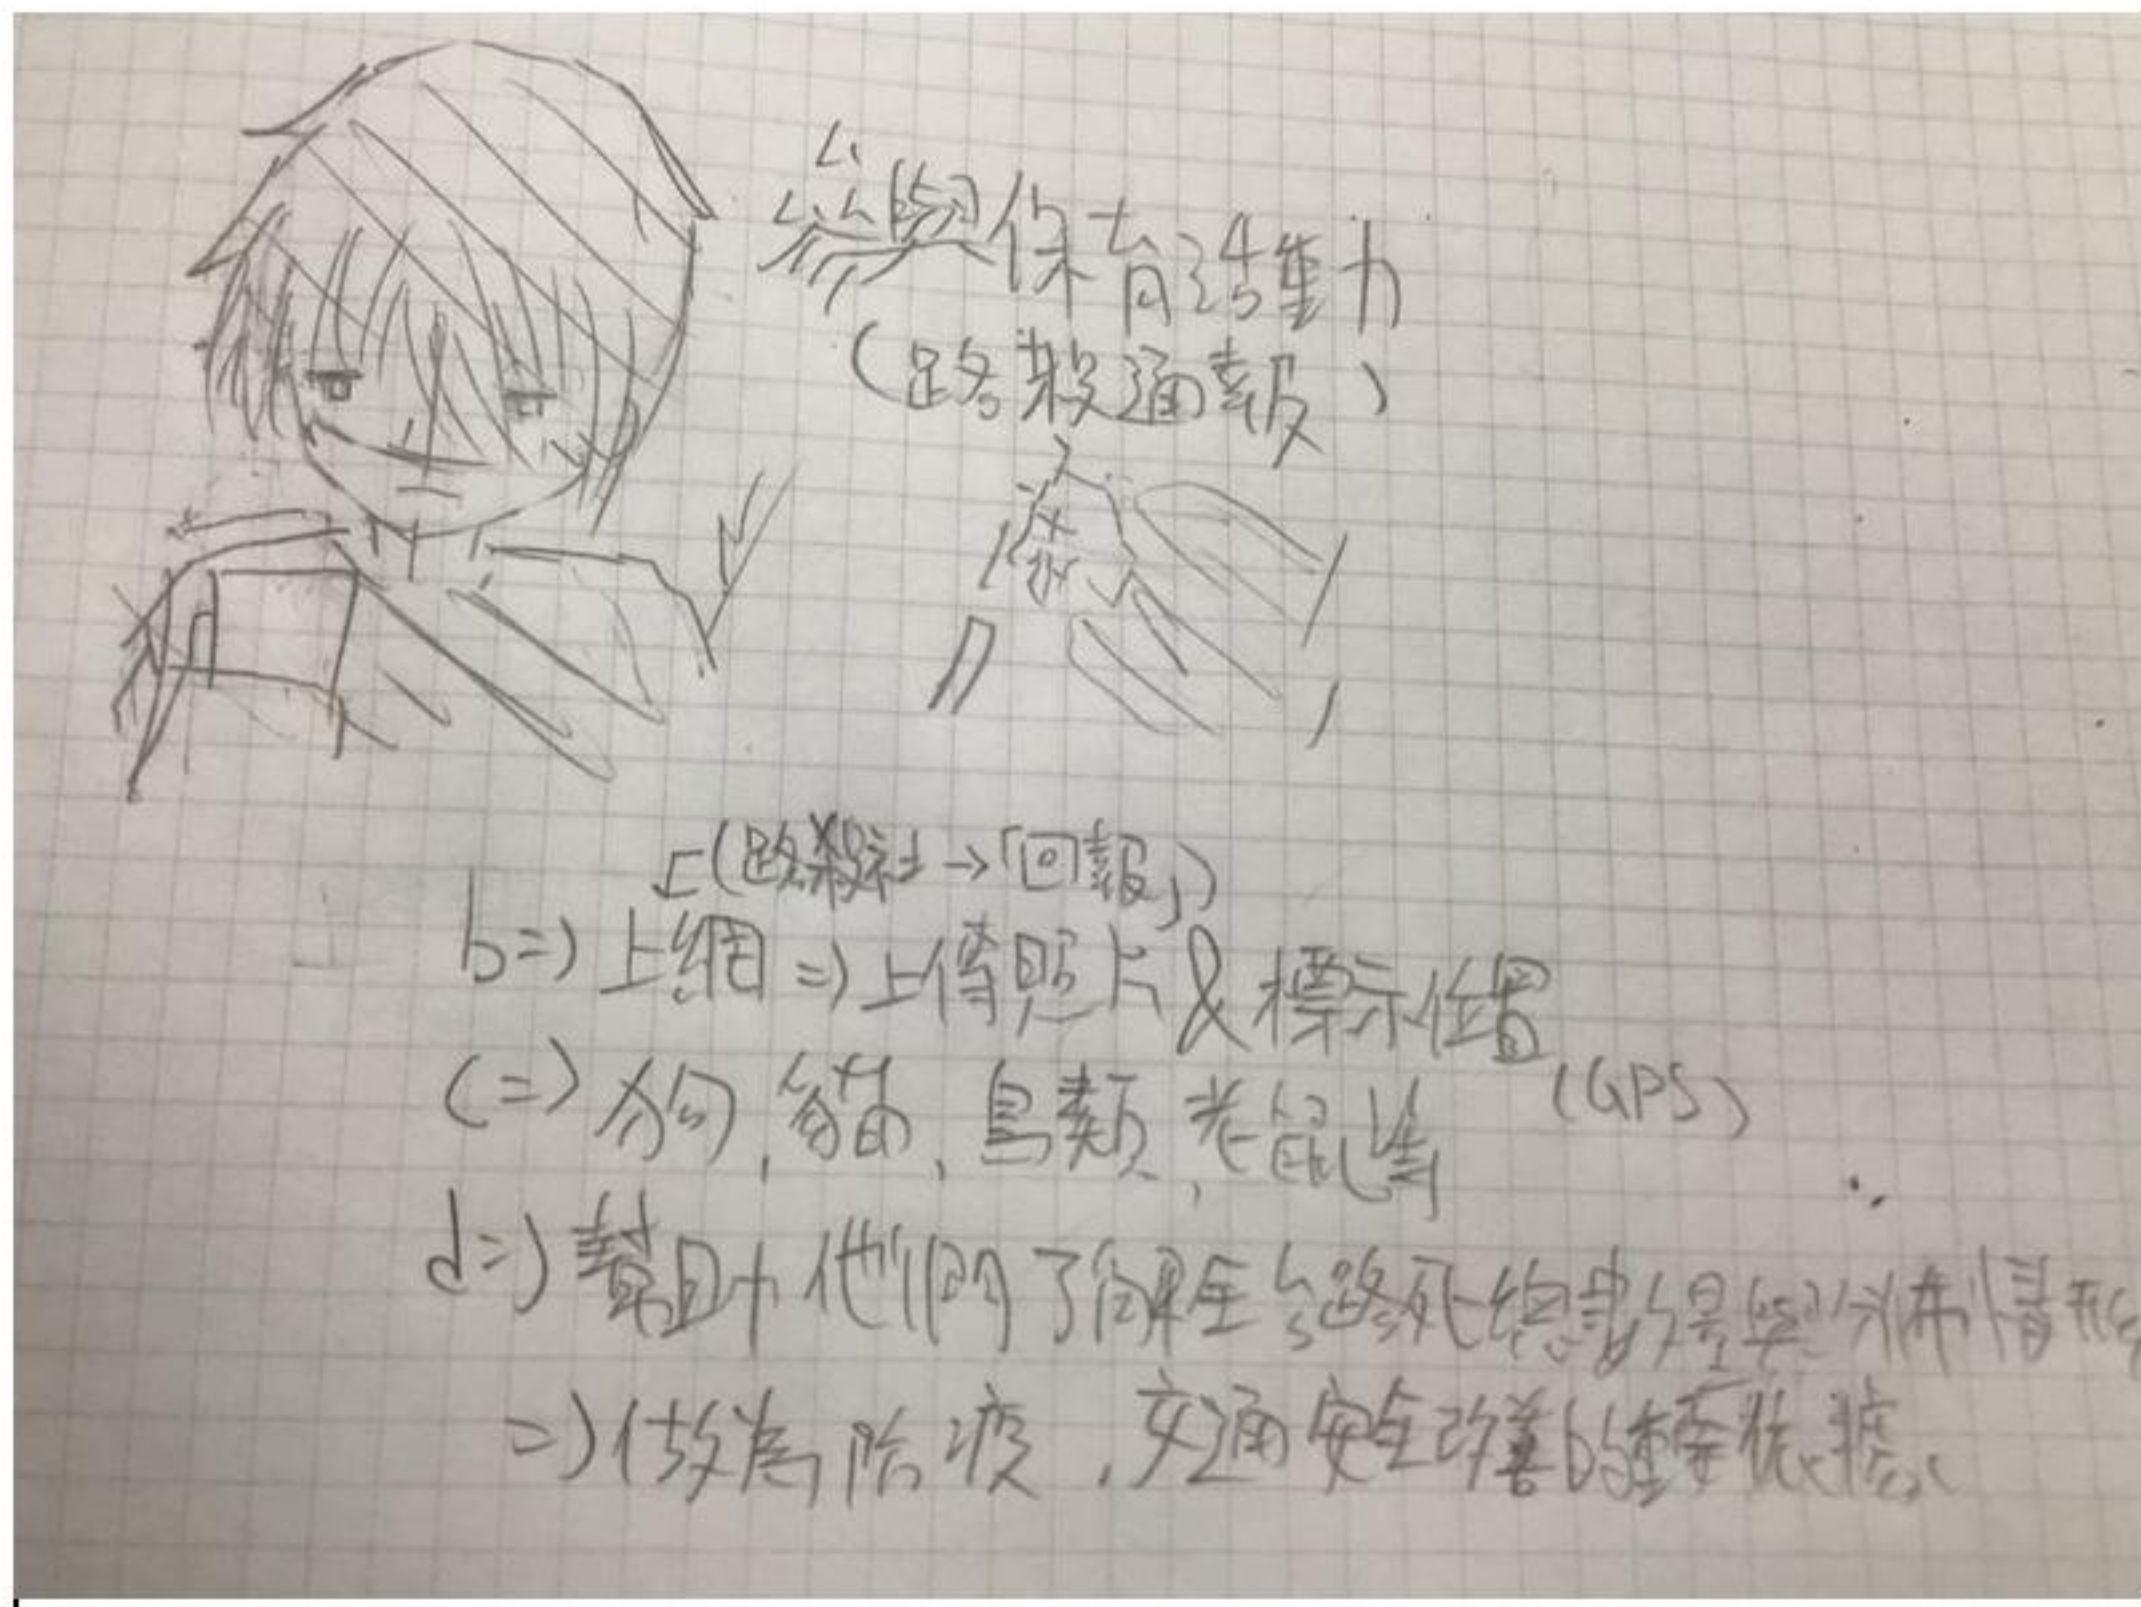 參與保育活動
(路殺通報)
(路殺社→「回報」)
b=>上網=>上傳照片&標示位置
(GPS)
c=>狗,貓,鳥類,老鼠等
d=>幫助他們了解全台路死總數量與分佈情形
=>做為防疫,交通安全改善的重要依據